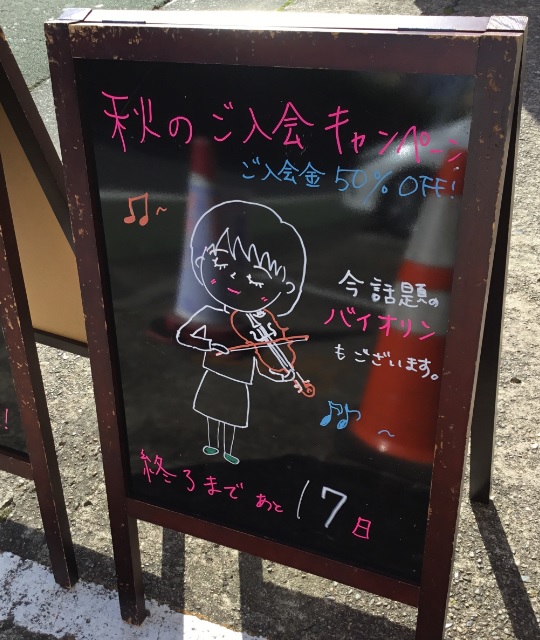 秋のご入会キャンペーン
ご入会金50%OFF!
今話題の
バイオリン
もございます。
終了まであと17日
!